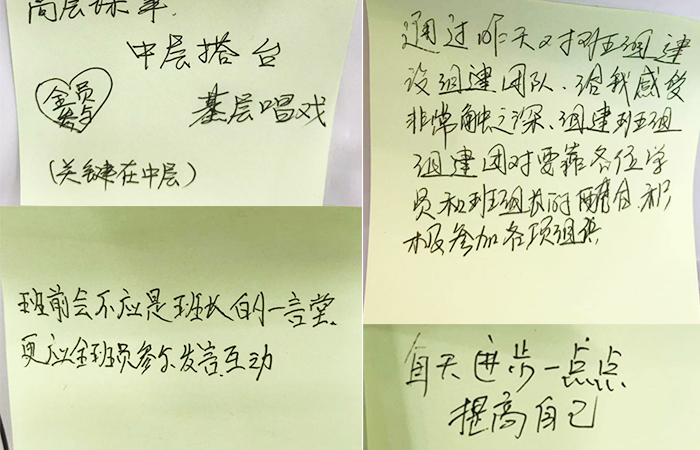 高层
中层搭台
全员
参与
基层唱戏
(关键在中层)
班前会不应是班长的一言堂.
更应全班员参与发言互动
通过昨天对班组建
设组建团队、给我感受
非常触之深、组建班组
组建团对要靠各位学
员和班组长的配合积
极参加各项组
每天进步一点点
提高自己